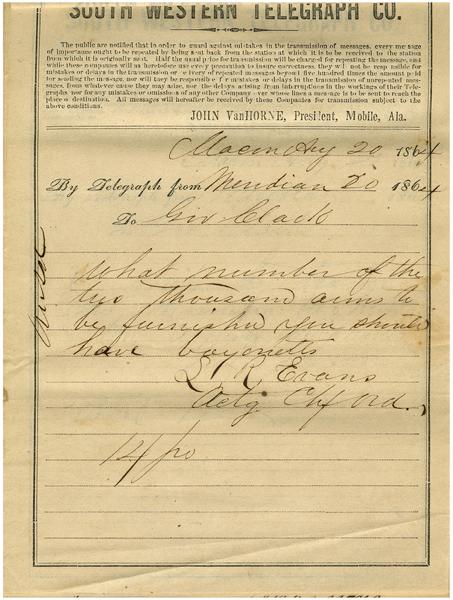 SOUTH WESTERN TELEGRAPH CO.
The public are notified that in order to guard against mistakes in the transmission of messages, every message
of importance ought to be repeated by being sent back from the station at which it is to be received to the station
from which it is originally sent. Half the usual price for transmission will be charged for repeating the message, and
while these companies will as heretofore use every precaution to insure correctness, they will not be responsible for
mistakes or delays in the transmission or delivery of repeated messages beyond five hundred times the amount paid
for sending the message, nor will they be responsible for mistakes or delays in the transmission of unrepeated messages,
from whatever cause they may arise, nor for delays arising from interruptions in the workings of their Telegraphs
nor for any mistakes or omissions of any other Company over whose lines a message is to be sent to reach the
place of destination. All messages will hereafter be received by these Companies for transmission subject to the
above conditions.
JOHN VanHORNE, President, Mobile, Ala.
Macon Aug 20 1864
By Telegraph from Meridian 20 1864
To Gov Clark
What number of the
two thousand arms to
be furnished you should
have bayonetts
L R Evans
Actg Chf Ord.
14 pd